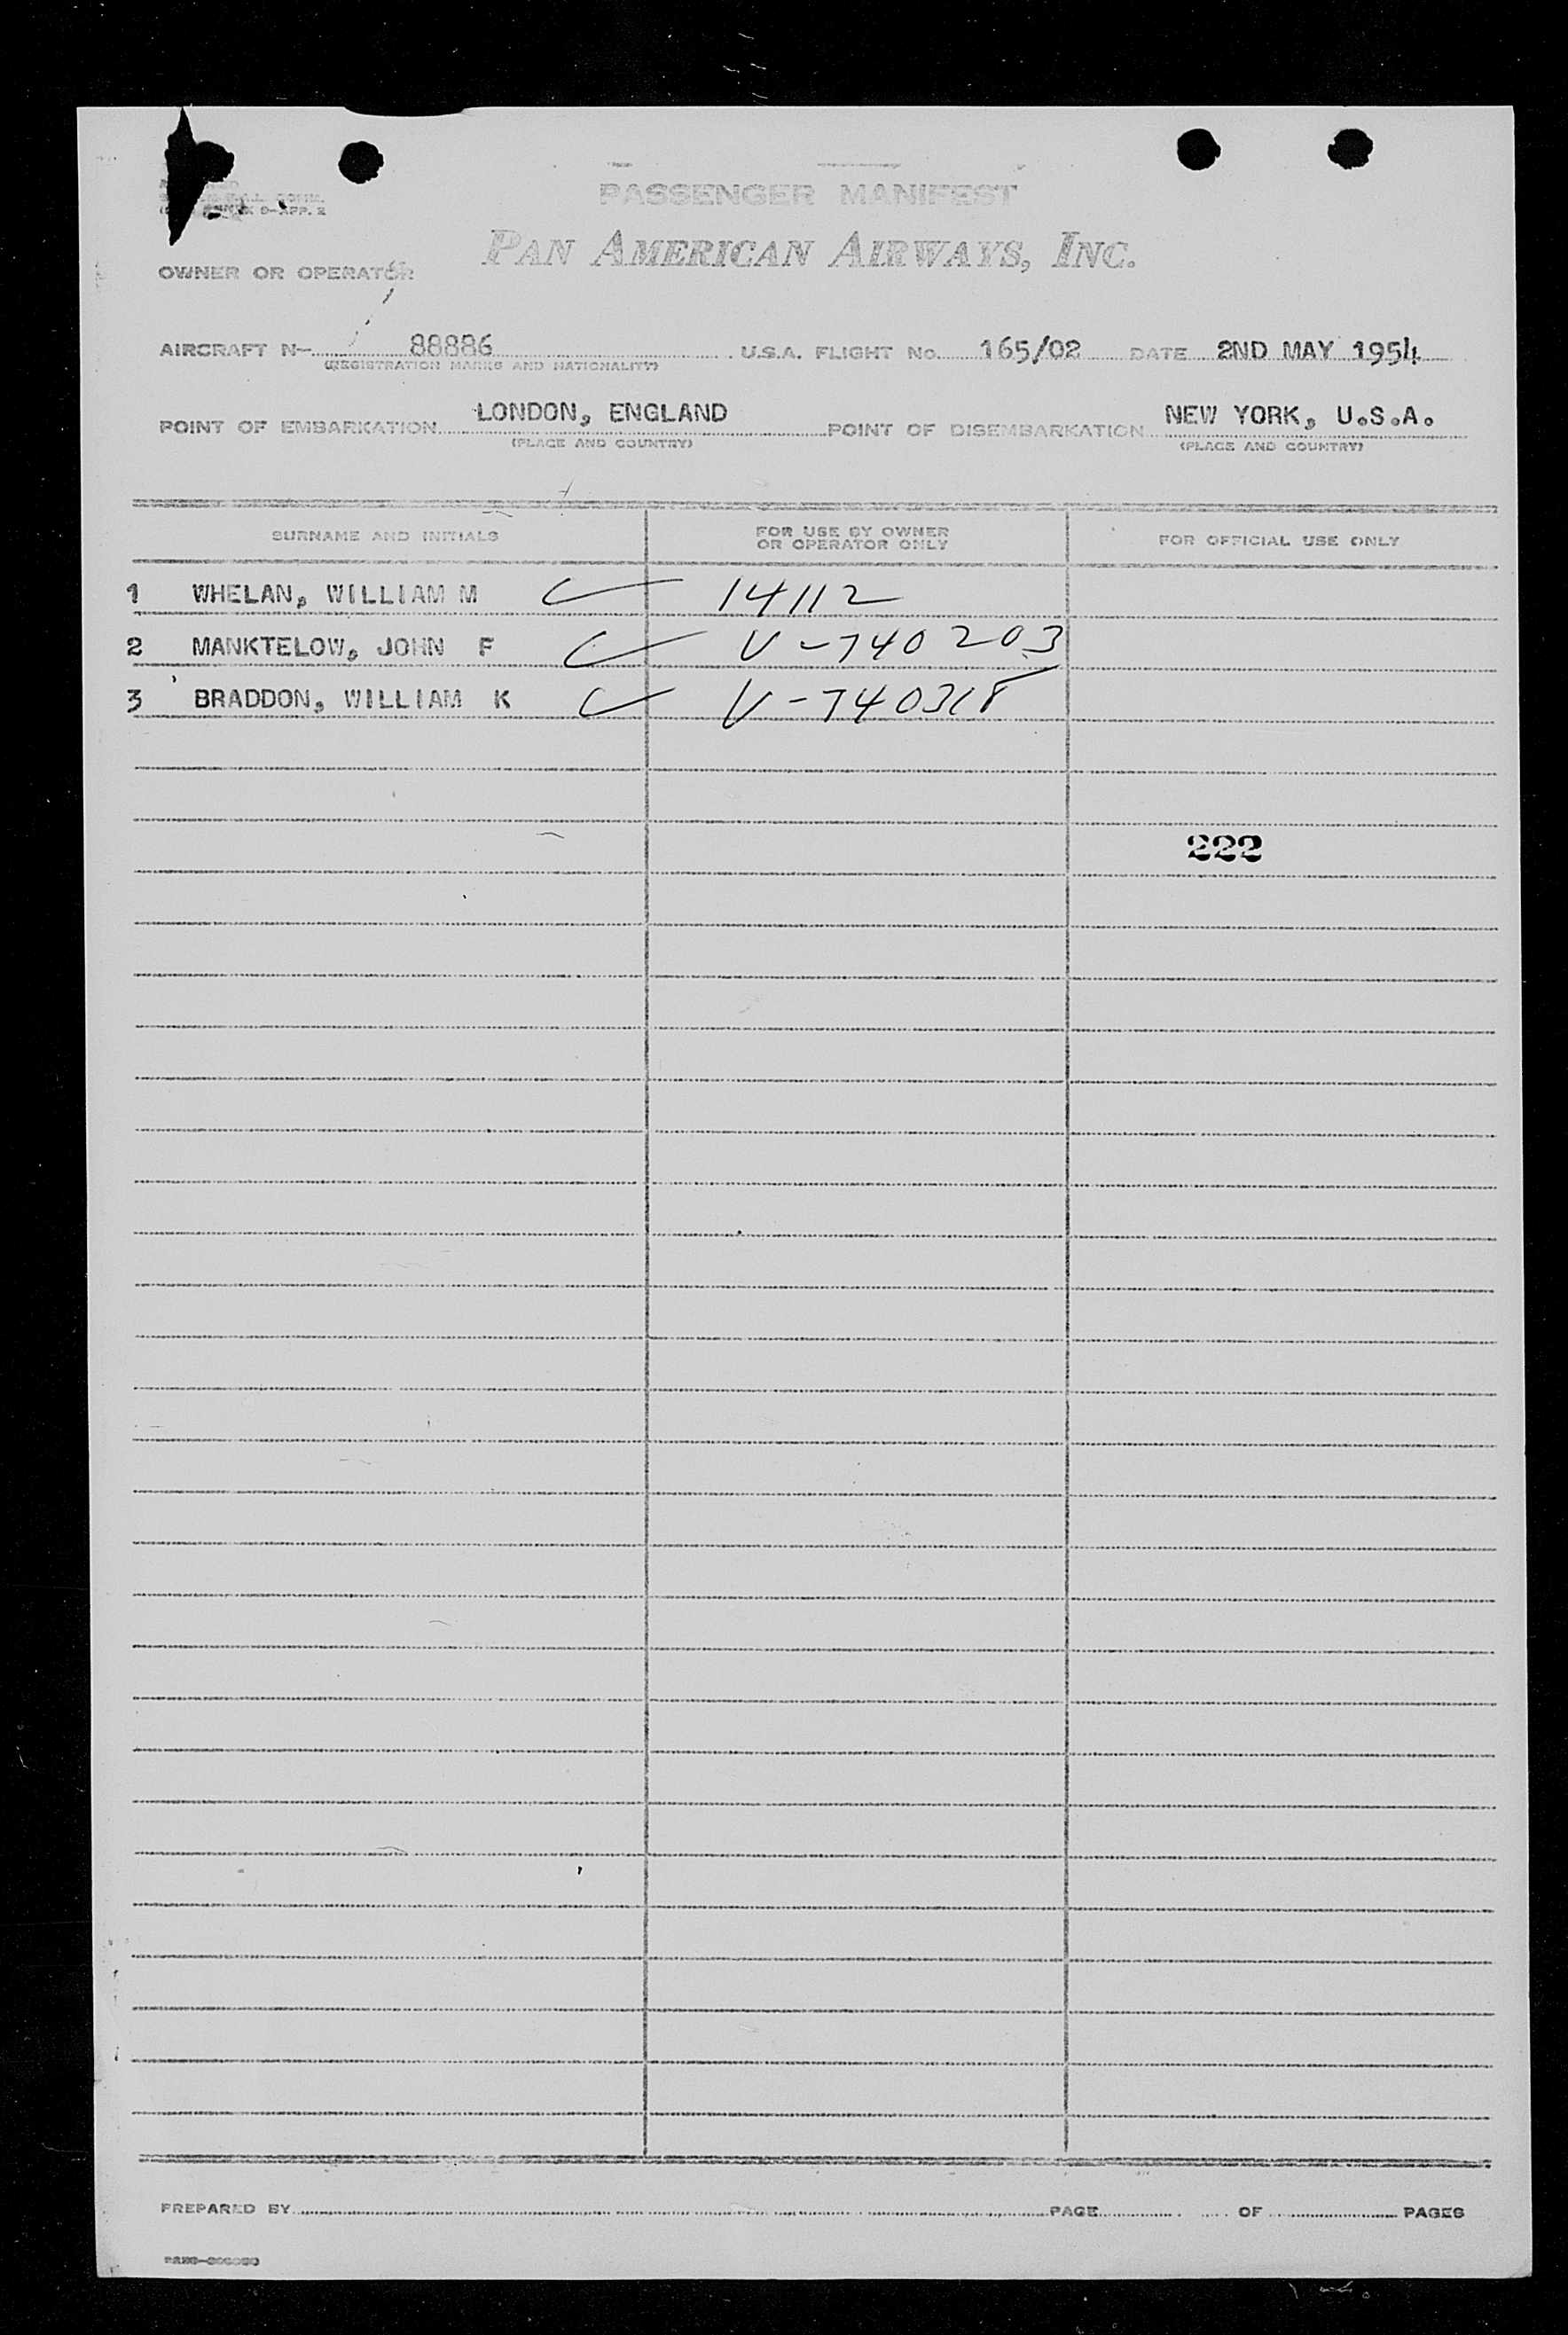 PASSENGER MANIFEST
PAN AMERICAN AIRWAYS, INC.
OWNER OR OPERATOR
AIRCRAFT N- 88886 U.S.A. FLIGHT No. 165/02 DATE 2ND MAY 1954
(REGISTRATION MARKS AND NATIONALITY)
POINT OF EMBARKATION LONDON, ENGLAND POINT OF DISEMBARKATION NEW YORK, U.S.A.
(PLACE AND COUNTRY) (PLACE AND COUNTRY)
SURNAME AND INITIALS FOR USE BY OWNER OR OPERATOR ONLY FOR OFFICIAL USE ONLY
1 WHELAN, WILLIAM M 14112
2 MANKTELOW, JOHN F V-740203
3 BRADDON, WILLIAM K V-740318
222
PREPARED BY PAGE OF PAGES